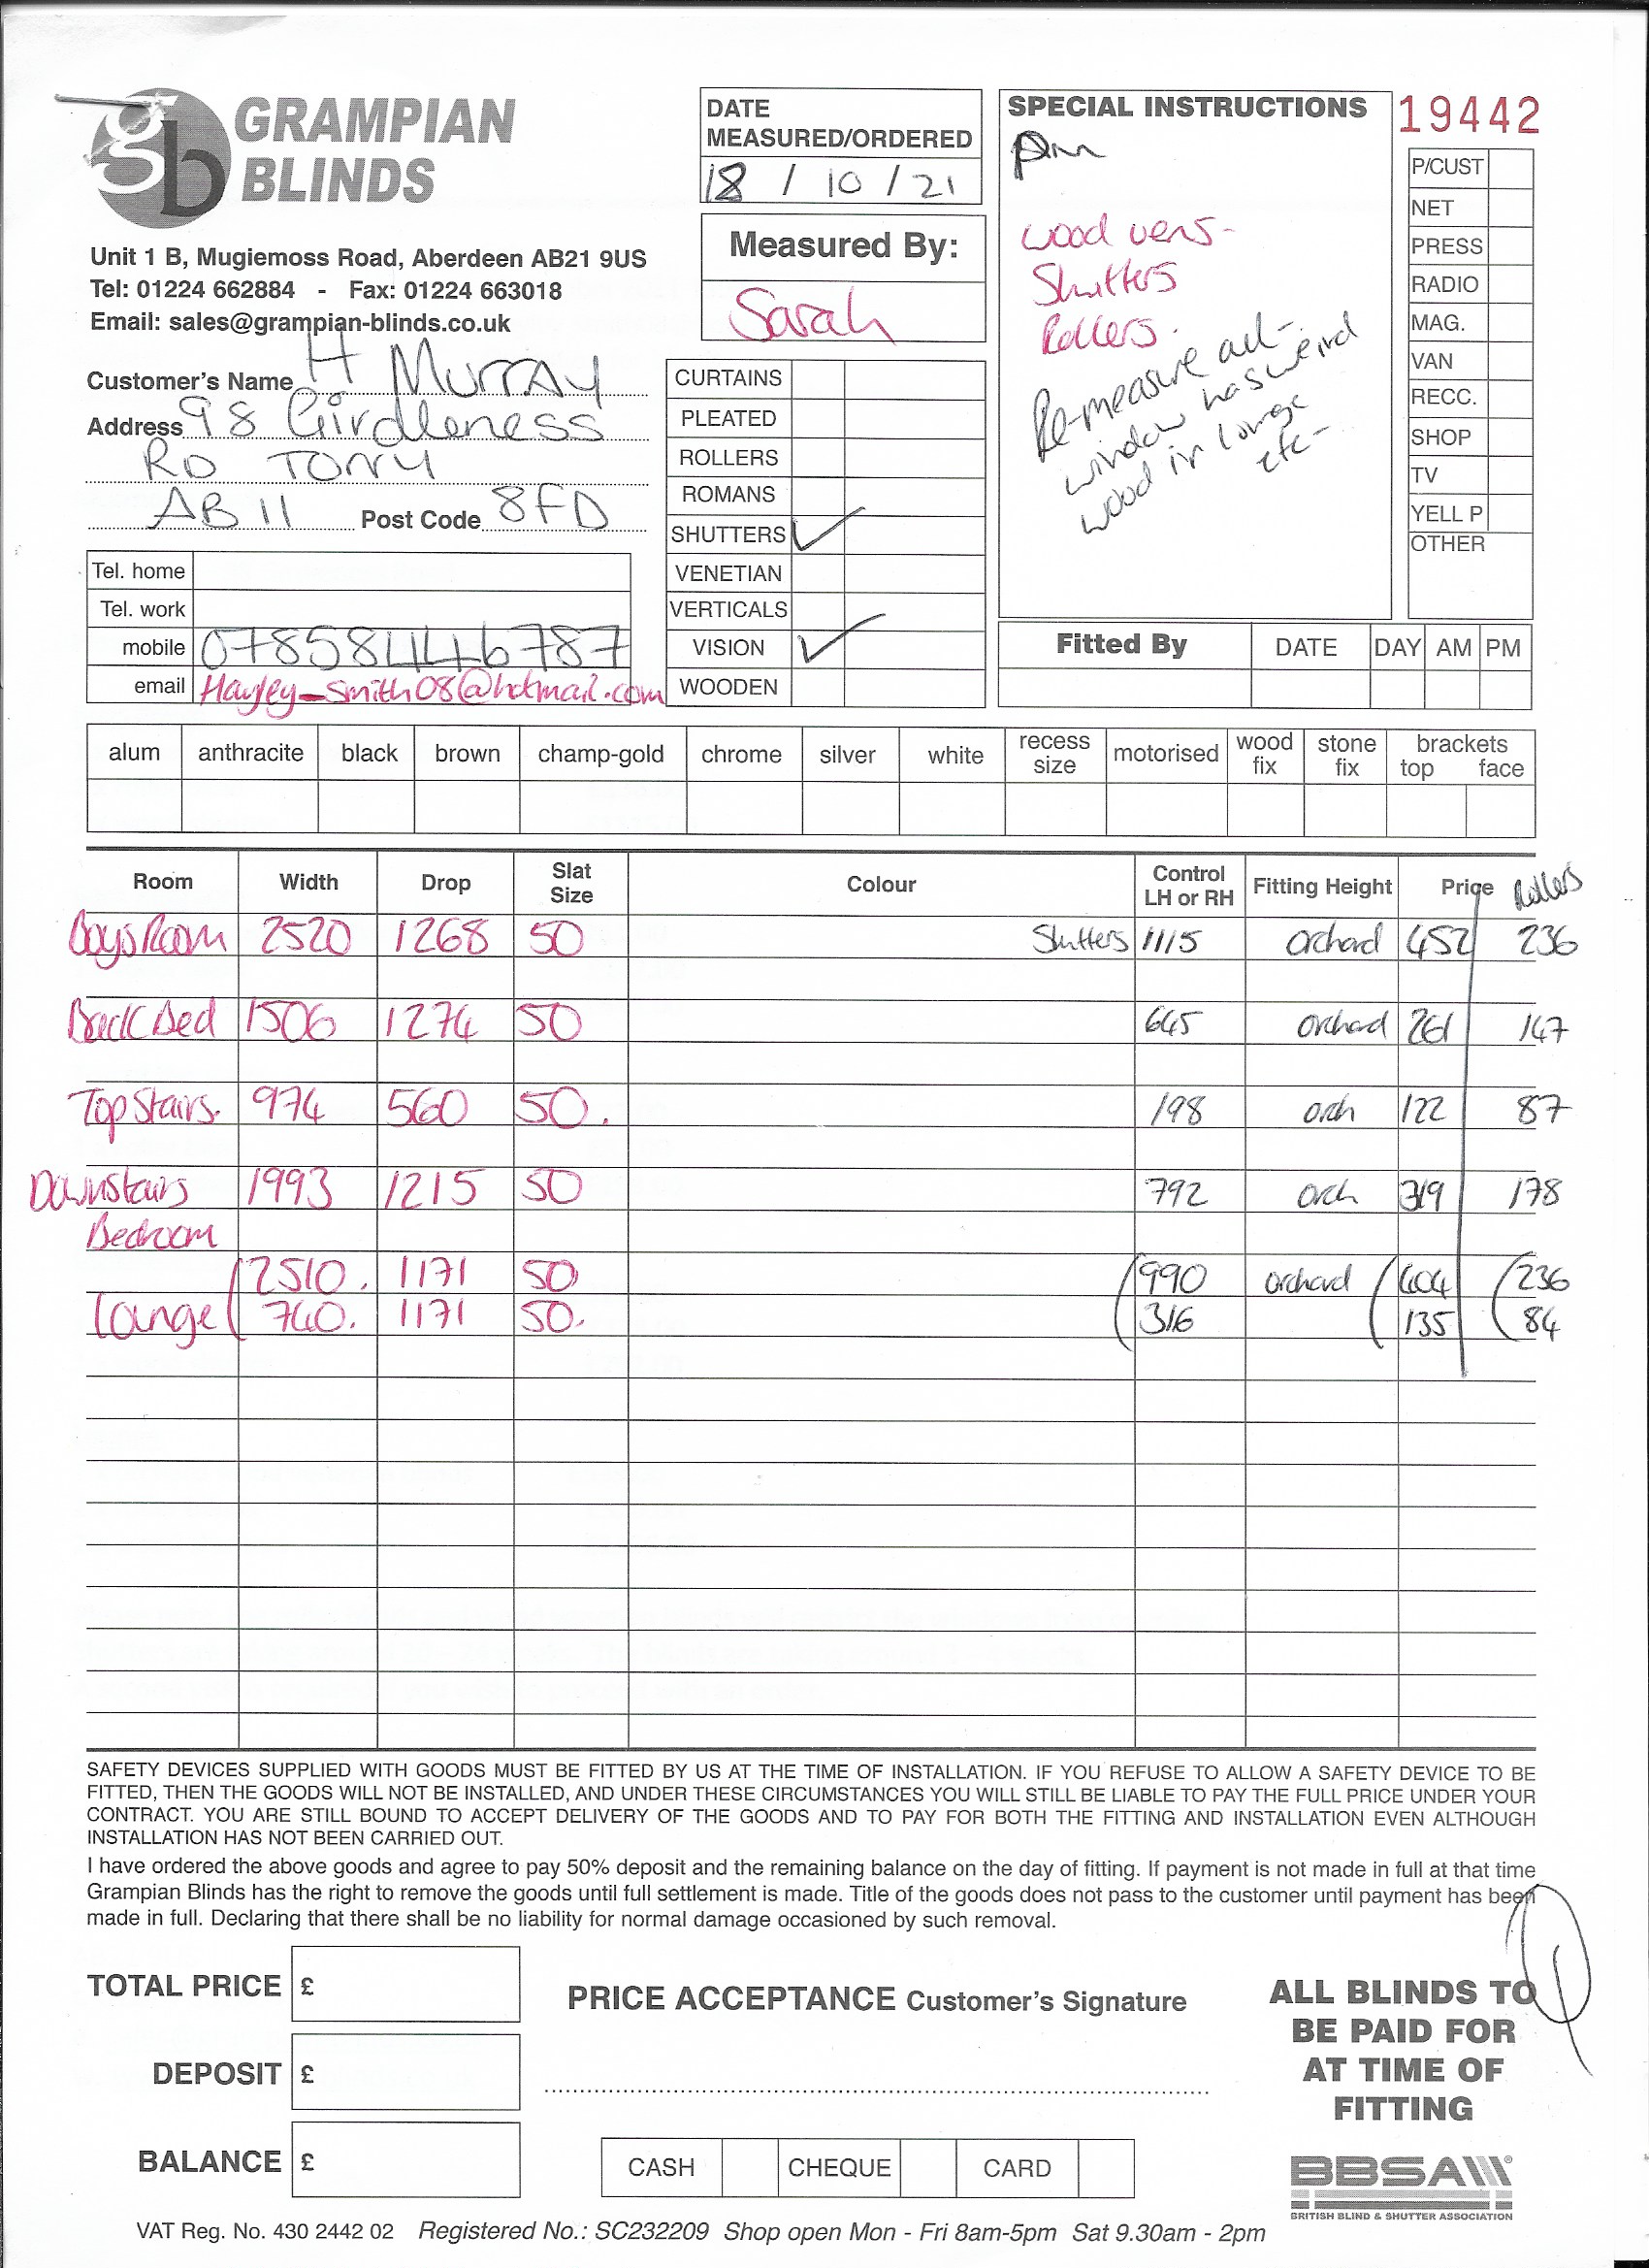 gb GRAMPIAN BLINDS
Unit 1 B, Mugiemoss Road, Aberdeen AB21 9US
Tel: 01224 662884 - Fax: 01224 663018
Email: sales@grampian-blinds.co.uk
Customer's Name H Murray
Address 98 Girdleness
RD TORRY
AB11 Post Code 8FD
Tel. home
Tel. work
mobile 07858446787
email Hayley_smith08@hotmail.com
DATE
MEASURED/ORDERED
18 / 10 / 21
Measured By:
Sarah
CURTAINS
PLEATED
ROLLERS
ROMANS
SHUTTERS ✓
VENETIAN
VERTICALS
VISION ✓
WOODEN
SPECIAL INSTRUCTIONS
pm
wood vens-
Shutters
Rollers.
Re-measure all-
window has weird
wood in lounge
etc-
19442
P/CUST
NET
PRESS
RADIO
MAG.
VAN
RECC.
SHOP
TV
YELL P
OTHER
Fitted By DATE DAY AM PM
alum anthracite black brown champ-gold chrome silver white recess size motorised wood fix stone fix brackets top face
Room Width Drop Slat Size Colour Control LH or RH Fitting Height Price Rollers
Boys Room 2520 1268 50 Shutters 1115 orchard 452 236
Back Bed 1506 1274 50 645 orchard 261 147
Top Stairs. 974 560 50. 198 orch 122 87
Downstairs 1993 1215 50 792 orch 319 178
Bedroom
2510. 1171 50 990 orchard 404 236
Lounge 740. 1171 50. 316 135 84
SAFETY DEVICES SUPPLIED WITH GOODS MUST BE FITTED BY US AT THE TIME OF INSTALLATION. IF YOU REFUSE TO ALLOW A SAFETY DEVICE TO BE
FITTED, THEN THE GOODS WILL NOT BE INSTALLED, AND UNDER THESE CIRCUMSTANCES YOU WILL STILL BE LIABLE TO PAY THE FULL PRICE UNDER YOUR
CONTRACT. YOU ARE STILL BOUND TO ACCEPT DELIVERY OF THE GOODS AND TO PAY FOR BOTH THE FITTING AND INSTALLATION EVEN ALTHOUGH
INSTALLATION HAS NOT BEEN CARRIED OUT.
I have ordered the above goods and agree to pay 50% deposit and the remaining balance on the day of fitting. If payment is not made in full at that time
Grampian Blinds has the right to remove the goods until full settlement is made. Title of the goods does not pass to the customer until payment has been
made in full. Declaring that there shall be no liability for normal damage occasioned by such removal.
TOTAL PRICE £
DEPOSIT £
BALANCE £
PRICE ACCEPTANCE Customer's Signature
CASH CHEQUE CARD
ALL BLINDS TO
BE PAID FOR
AT TIME OF
FITTING
BBSA
BRITISH BLIND & SHUTTER ASSOCIATION
VAT Reg. No. 430 2442 02 Registered No.: SC232209 Shop open Mon - Fri 8am-5pm Sat 9.30am - 2pm